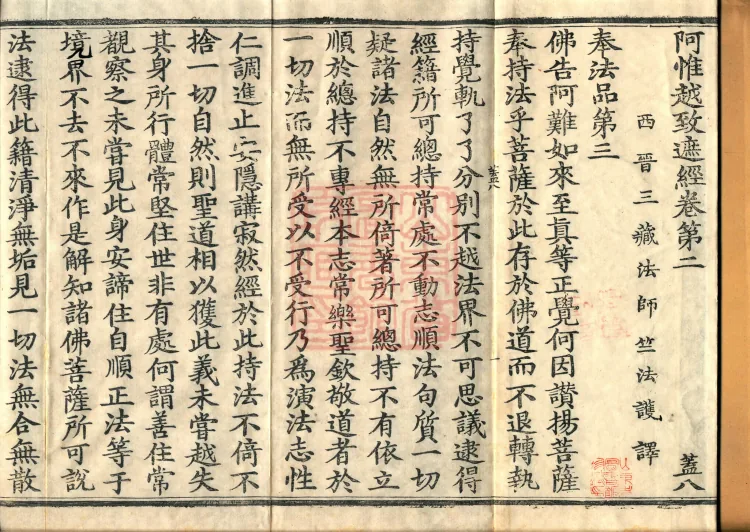 阿惟越致遮經卷第二　蓋八
西晉三藏法師竺法護譯
奉法品第三
佛告阿難如來至真等正覺何因讚揚菩薩
奉持法乎菩薩於此存於佛道而不退轉執
持覺軌了了分別不越法界不可思議逮得
蓋八
經籍所可總持常處不動志順法句質一切
疑諸法自然無所倚著所可總持不有依立
順於總持不專經本志常樂聖欽敬道者於
一切法而無所受以不受行乃為演法志性
仁調進止安隱講寂然經於此持法不倚不
捨一切自然則聖道相以獲此義未嘗越失
其身所行體常堅住世非有處何謂善住常
觀察之未嘗見此身安諦住自順正法等于
境界不去不來作是解知諸佛菩薩所可說
法逮得此籍清淨無垢見一切法無合無散